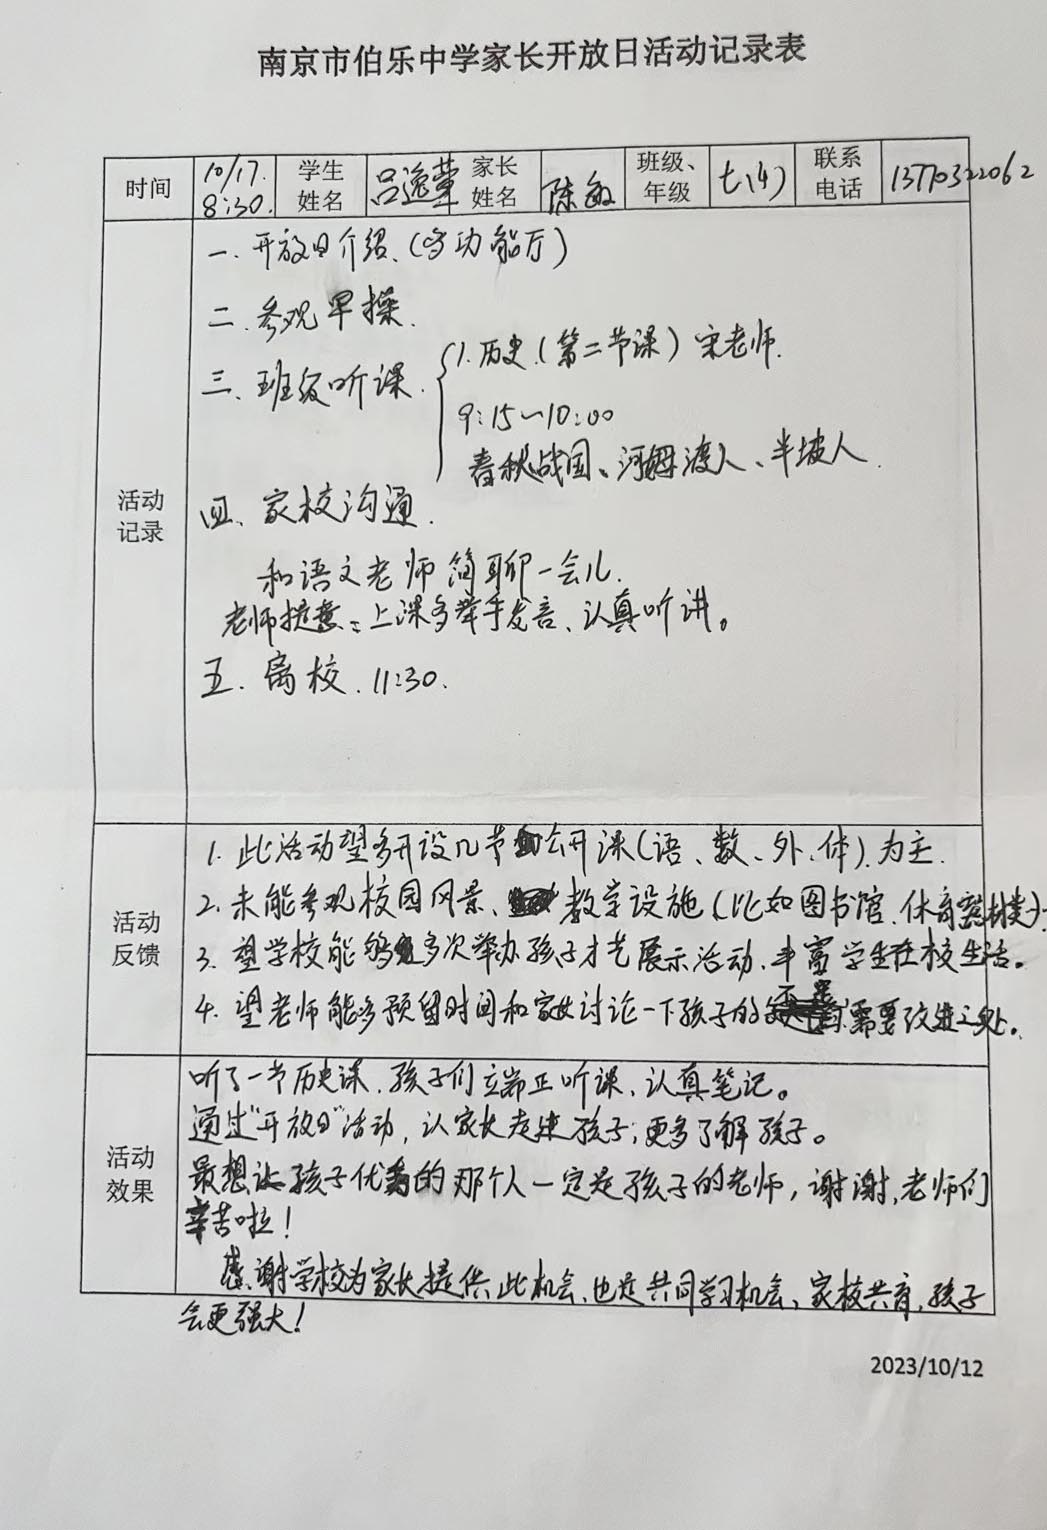 南京市伯乐中学家长开放日活动记录表
时间 10/17. 8:30. 学生姓名 吕逸 家长姓名 陈敏 班级、年级 七(4) 联系电话 13770322062
活动记录
一. 开放日介绍、(多功能厅)
二. 参观早操.
三. 班级听课. 1. 历史.(第二节课) 宋老师.
9:15~10:00
春秋战国、河姆渡人、半坡人.
四、家校沟通.
和语文老师简聊一会儿.
老师提意:上课多举手发言、认真听讲。
五. 离校. 11:30.
活动反馈
1. 此活动望多开设几节公开课(语、数、外、体).为主.
2. 未能参观校园风景、教学设施(比如图书馆.体育
3. 望学校能够多次举办孩子才艺展示活动.丰富学生在校生活。
4. 望老师能多预留时间和家长讨论一下孩子的不足需要改进之处。
活动效果
听了一节历史课.孩子们立端正听课、认真笔记。
通过"开放日"活动,认家长走进孩子;更多了解孩子。
最想让孩子优秀的那个人一定是孩子的老师,谢谢,老师们
辛苦啦!
感谢学校为家长提供此机会、也是共同学习机会、家校共育,孩子
会更强大!
2023/10/12